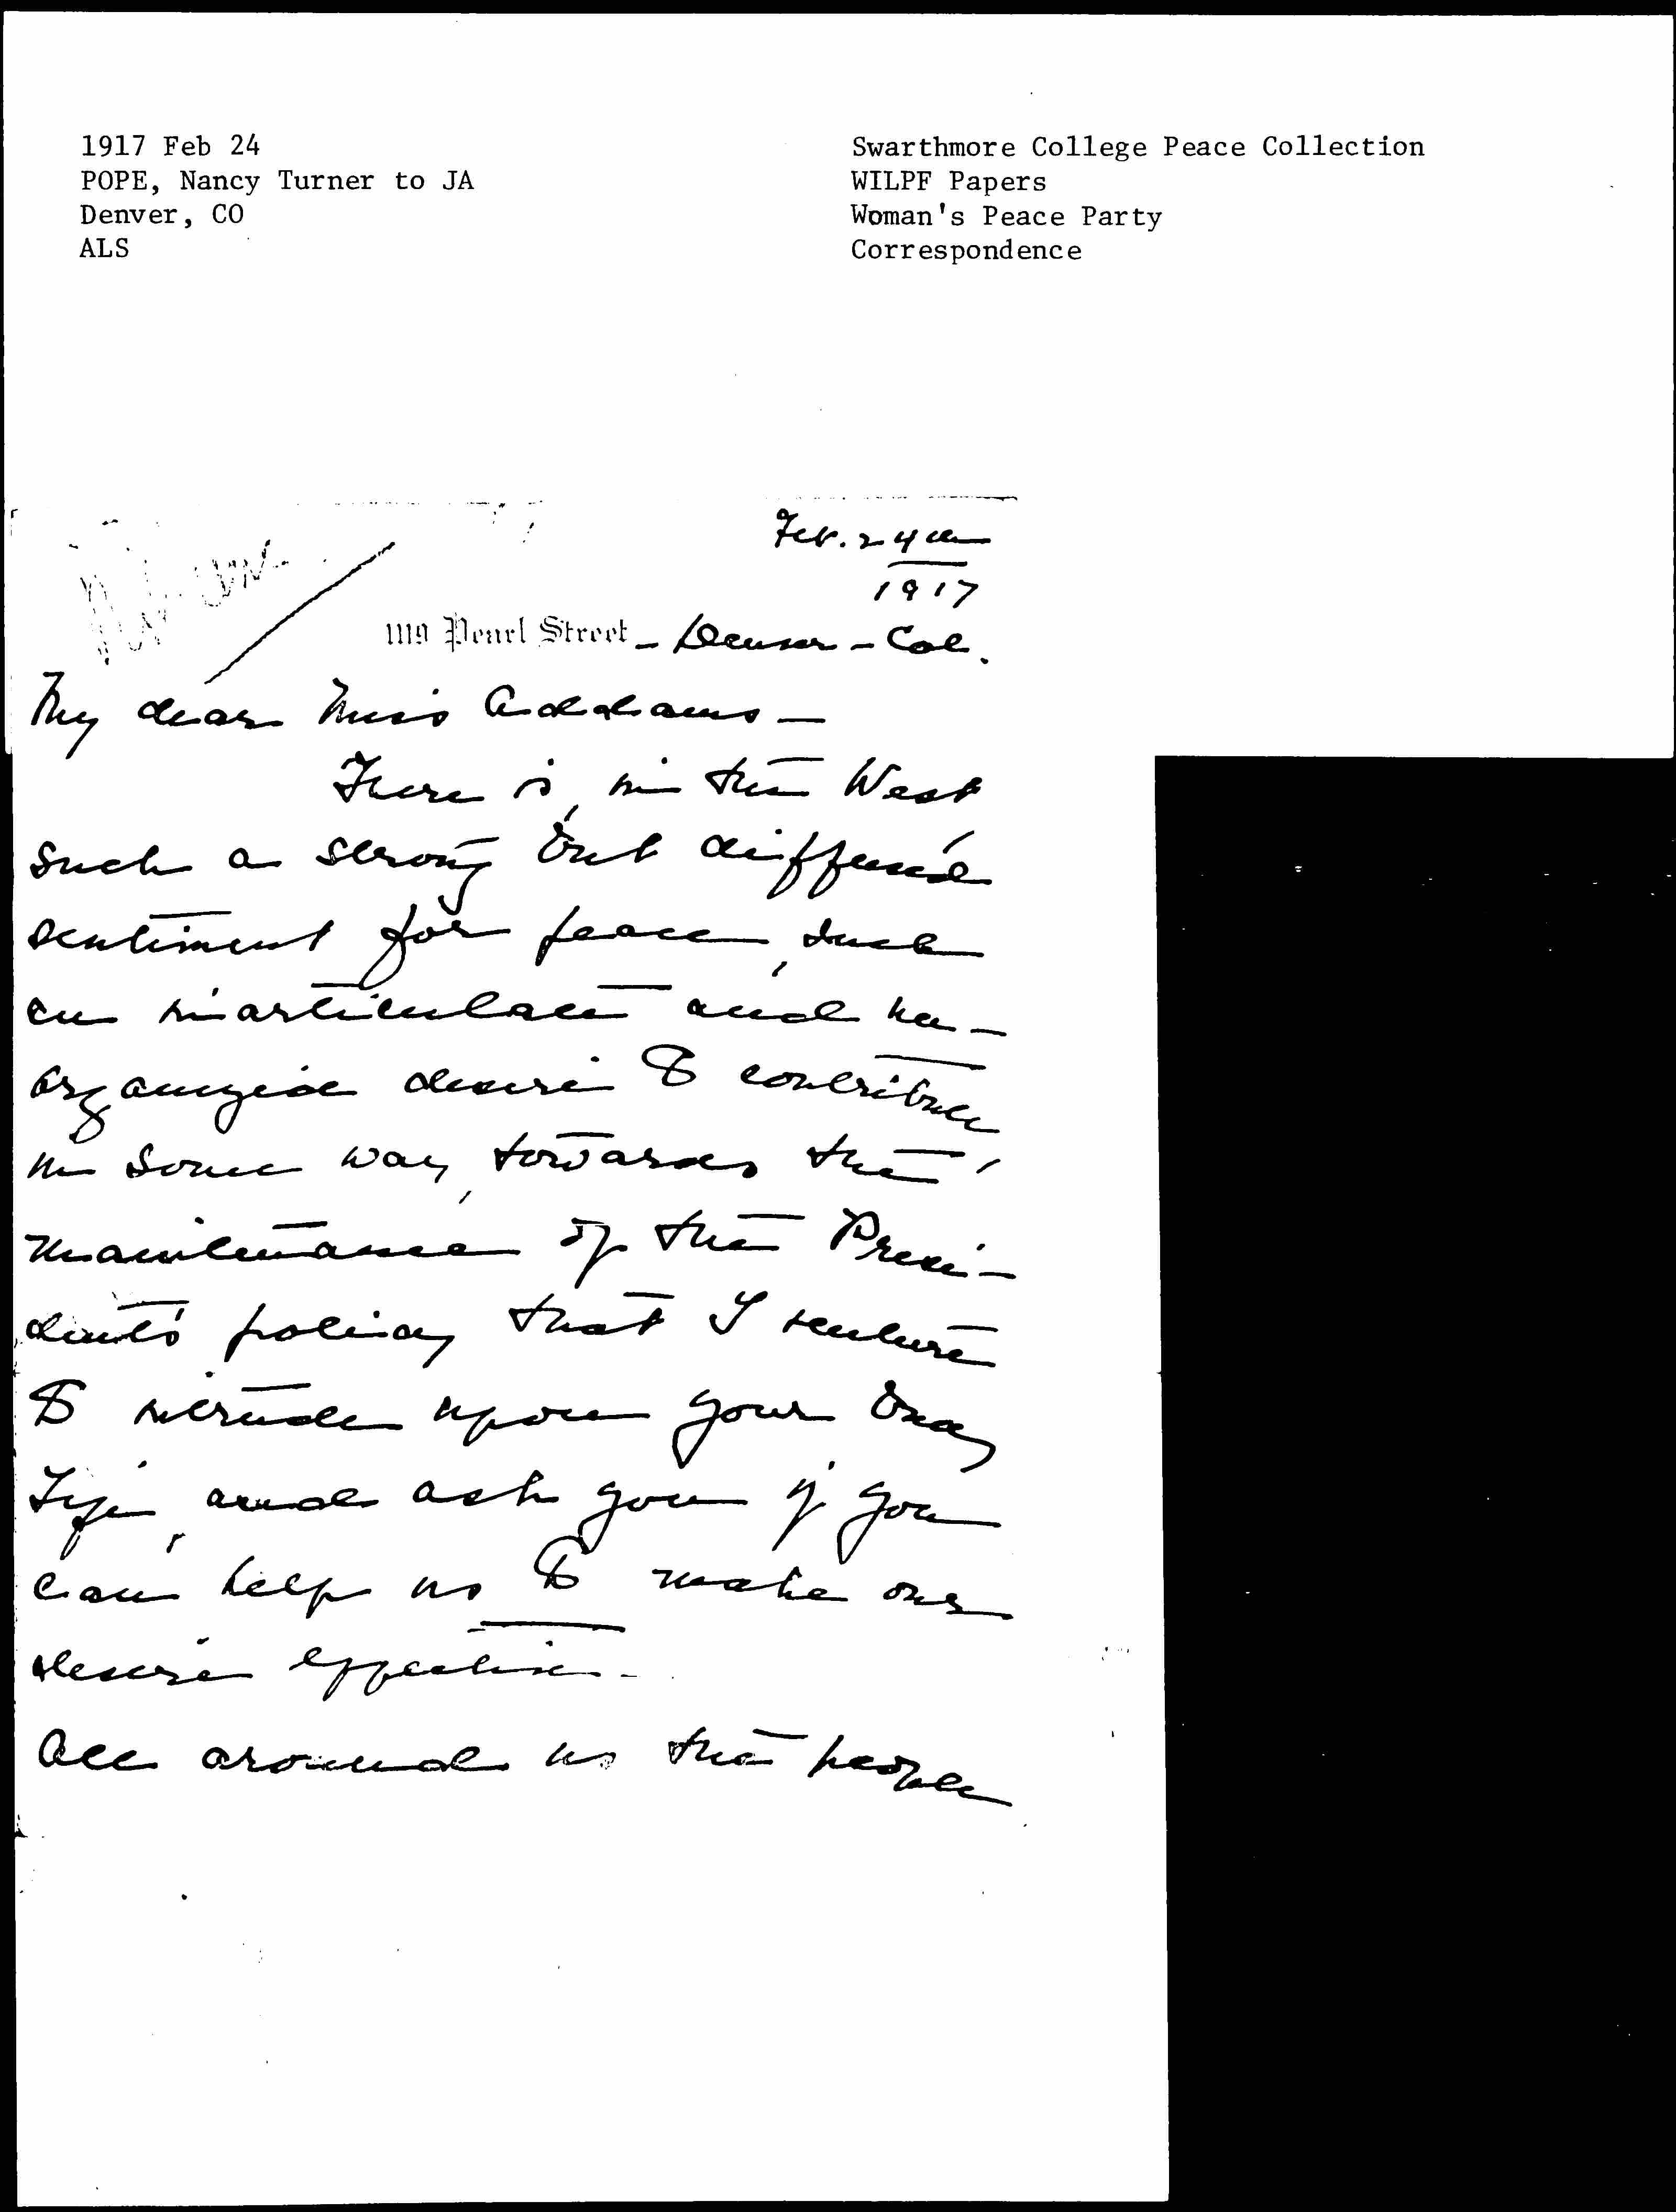 1917 Feb 24
POPE, Nancy Turner to JA
Denver, CO
ALS
Swarthmore College Peace Collection
WILPF Papers
Woman's Peace Party
Correspondence
Feb. 24th
1917
1119 Pearl Street - Denver - Col.
My dear Miss Addams -
There is, in the West
such a strong but diffused
sentiment for peace, such
an inarticulate and un-
organized desire to contribute,
in some way, towards the
maintenance of the Presi-
dent's policy that I venture
to intrude upon your busy
life, and ask you if you
can help us to make our
desire effective -
All around us the people